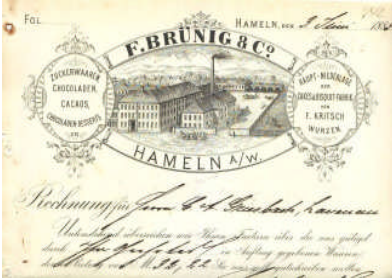 Fol.
HAMELN, DEN 3 Juni
F. BRÜNIG & Co.
ZUCKERWAAREN,
CHOCOLADEN,
CACAOS,
CHOCOLADEN DESSERTS
ETC.
HAUPT-NIEDERLAGE
DER
CAKES & BISQUIT-FABRIK
VON
F. KRITSCH
WURZEN.
HAMELN A/W.
Rechnung für Herrn
Untenstehend überreichen wir Ihnen Factura über die uns gütigst
durch in Auftrag gegebenen Waaren,
deren Betrag von M. 39,22 Sie uns gutzuschreiben wollen